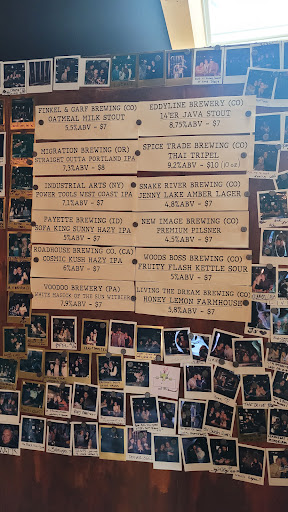 FINKEL & GARF BREWING (CO)
OATMEAL MILK STOUT
5.5%ABV - $7
MIGRATION BREWING (OR)
STRAIGHT OUTTA PORTLAND IPA
7.3%ABV - $8
INDUSTRIAL ARTS (NY)
POWER TOOLS WEST COAST IPA
7.1%ABV - $7
PAYETTE BREWING (ID)
SOFA KING SUNNY HAZY IPA
5%ABV - $7
ROADHOUSE BREWING CO. (CA)
COSMIC KUSH HAZY IPA
6%ABV - $7
VOODOO BREWERY (PA)
WHITE MAGICK OF THE SUN WITBIER
7.9%ABV - $7
EDDYLINE BREWERY (CO)
14'ER JAVA STOUT
8.75%ABV - $7
SPICE TRADE BREWING (CO)
THAI TRIPEL
9.2%ABV - $10 (10oz)
SNAKE RIVER BREWING (WY)
JENNY LAKE AMBER LAGER
4.8%ABV - $7
NEW IMAGE BREWING (CO)
PREMIUM PILSNER
4.5%ABV - $7
WOODS BOSS BREWING (CO)
FRUITY FLASH KETTLE SOUR
5%ABV - $7
LIVING THE DREAM BREWING (CO)
HONEY LEMON FARMHOUSE
5.8%ABV - $7